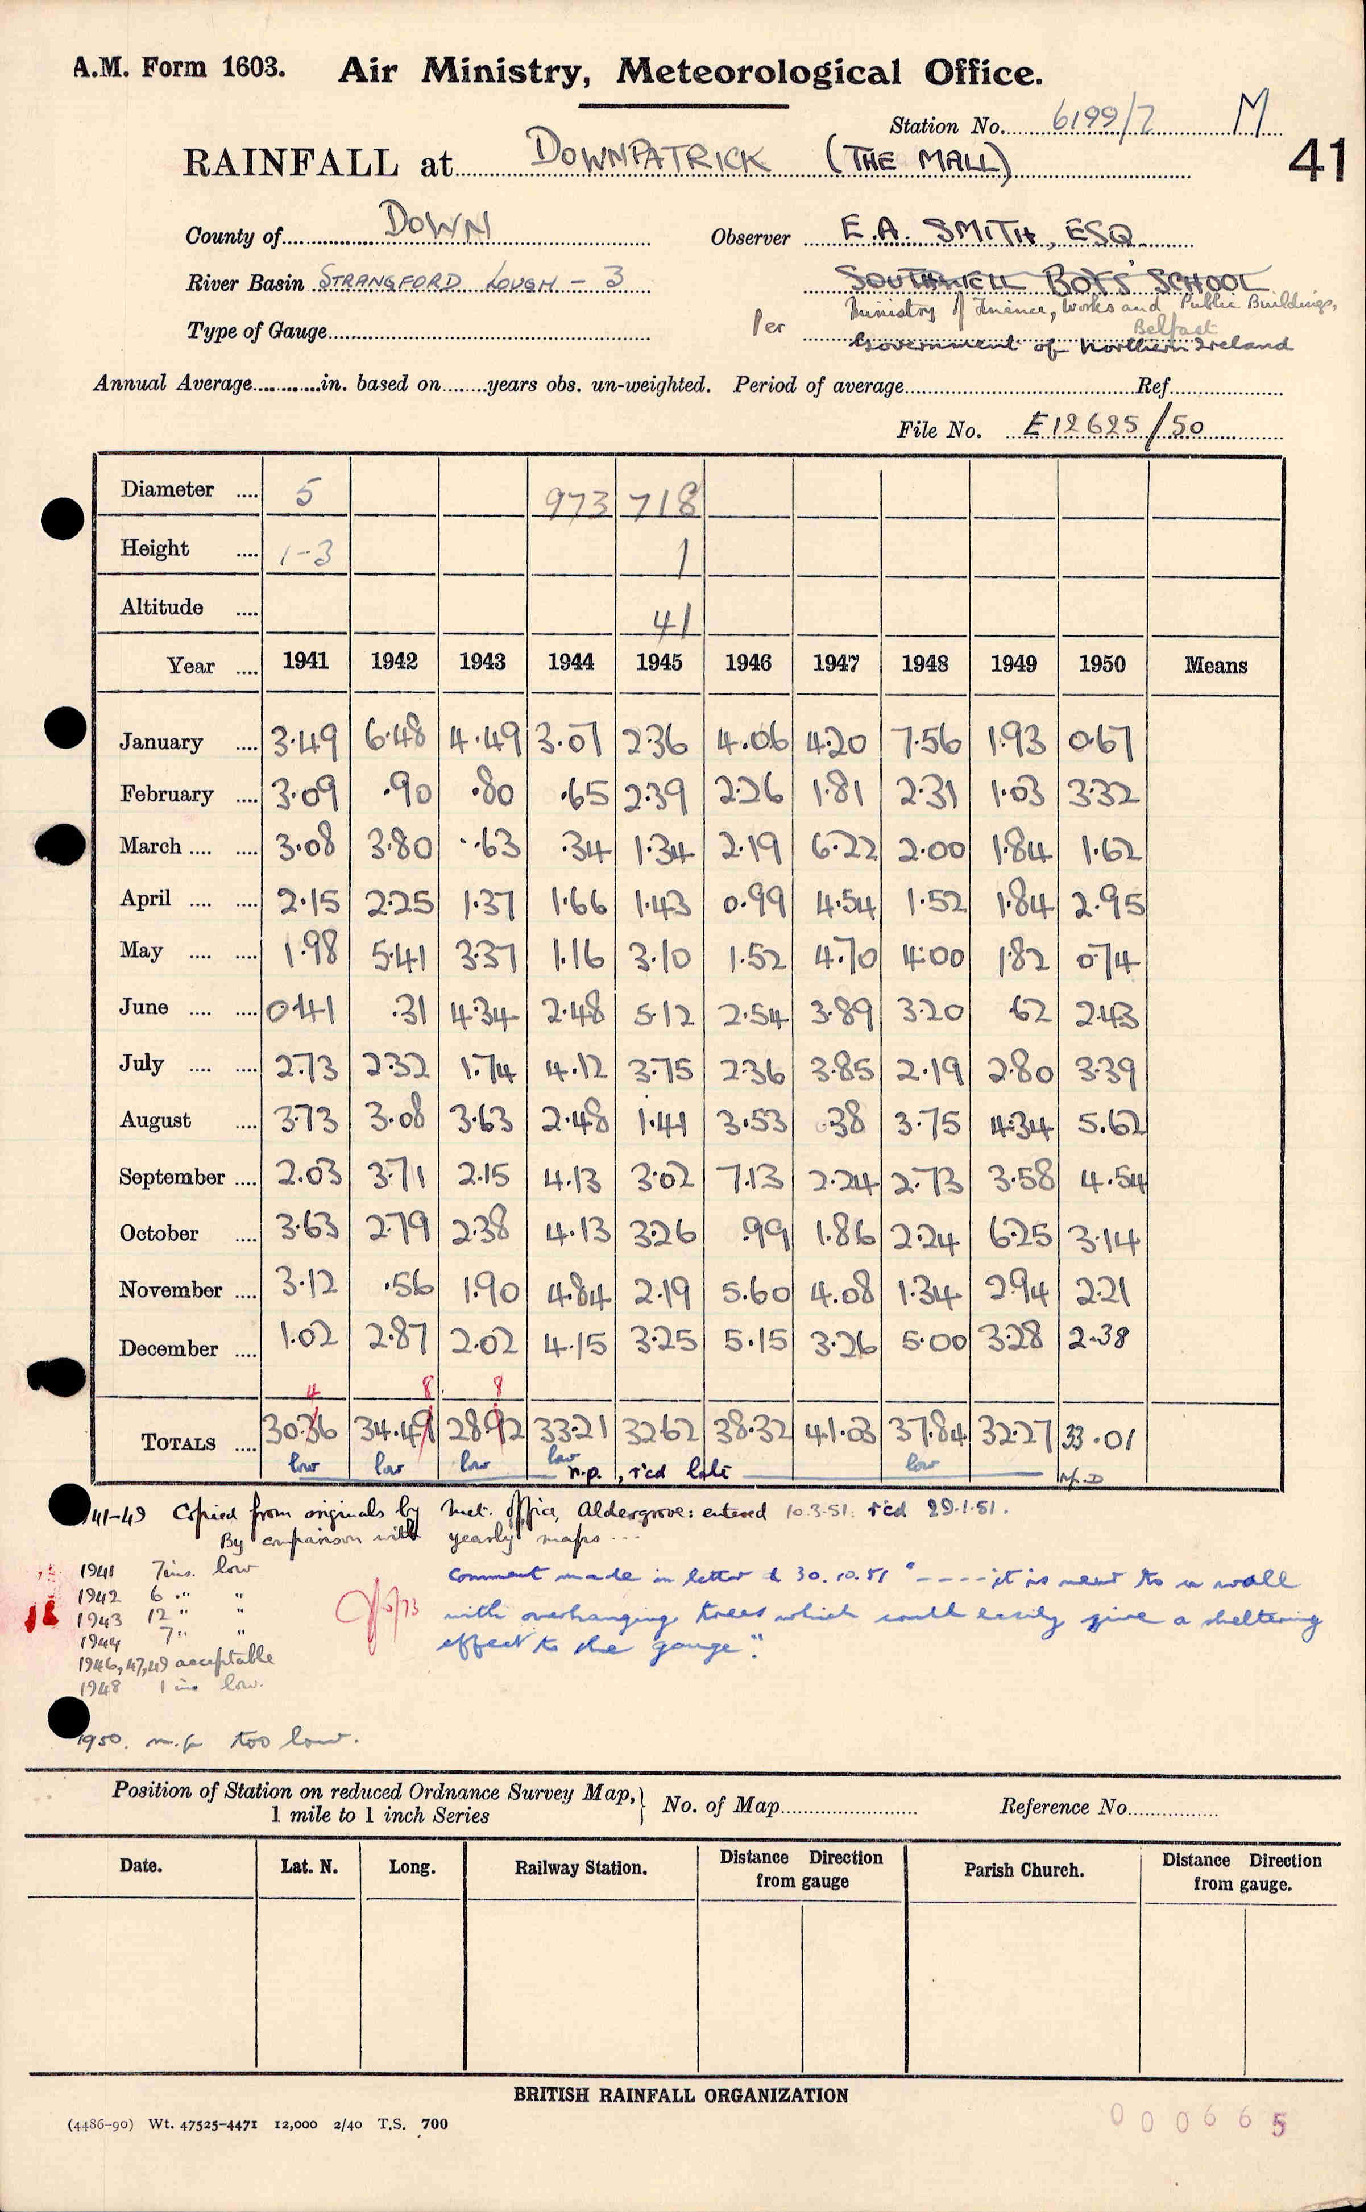 A.M. Form 1603. Air Ministry, Meteorological Office.
Station No. 6199/7 M
41
RAINFALL at DOWNPATRICK (THE MALL)
County of DOWN Observer E.A. SMITH, ESQ.
River Basin STRANGFORD LOUGH - 3 SOUTHWELL BOYS' SCHOOL
Ministry of Finance, Works and Public Buildings,
Belfast
Type of Gauge Per Government of Northern Ireland
Annual Average in. based on years obs. un-weighted. Period of average Ref.
File No. E12625/50
Diameter 5 973 718
Height 1-3 1
Altitude 41
Year 1941 1942 1943 1944 1945 1946 1947 1948 1949 1950 Means
January 3.49 6.48 4.49 3.07 2.36 4.06 4.20 7.56 1.93 0.67
February 3.09 .90 .80 .65 2.39 2.26 1.81 2.31 1.03 3.32
March 3.08 3.80 .63 .34 1.34 2.19 6.22 2.00 1.84 1.62
April 2.15 2.25 1.37 1.66 1.43 0.99 4.54 1.52 1.84 2.95
May 1.98 5.41 3.37 1.16 3.10 1.52 4.70 4.00 1.82 0.74
June 0.41 .31 4.34 2.48 5.12 2.54 3.89 3.20 .62 2.43
July 2.73 2.32 1.74 4.12 3.75 2.36 3.85 2.19 2.80 3.39
August 3.73 3.08 3.63 2.48 1.41 3.53 .38 3.75 4.34 5.62
September 2.03 3.71 2.15 4.13 3.02 7.13 2.24 2.73 3.58 4.54
October 3.63 2.79 2.38 4.13 3.26 .99 1.86 2.24 6.25 3.14
November 3.12 .56 1.90 4.84 2.19 5.60 4.08 1.34 2.94 2.21
December 1.02 2.87 2.02 4.15 3.25 5.15 3.26 5.00 3.28 2.38
4 8 8
TOTALS 30.36 34.49 28.92 33.21 32.62 38.32 41.03 37.84 32.27 33.01
low low low low n.p., r'cd late low N.P.
41-49 Copied from originals by Met. Office, Aldergrove: entered 10.3.51. r'cd 29.1.51.
By comparison with yearly maps ...
1941 7ins. low
1942 6 " "
1943 12 " "
1944 7 " "
1946,47,49 acceptable
1948 1 in low.
Comment made in letter d 30.10.51 "----it is near to a wall
with overhanging trees which could easily give a sheltering
effect to the gauge".
1950. n.p. too low.
Position of Station on reduced Ordnance Survey Map,
1 mile to 1 inch Series
No. of Map Reference No.
Date. Lat. N. Long. Railway Station. Distance Direction from gauge Parish Church. Distance Direction from gauge.
BRITISH RAINFALL ORGANIZATION
(4486-90) Wt. 47525-4471 12,000 2/40 T.S. 700
000665